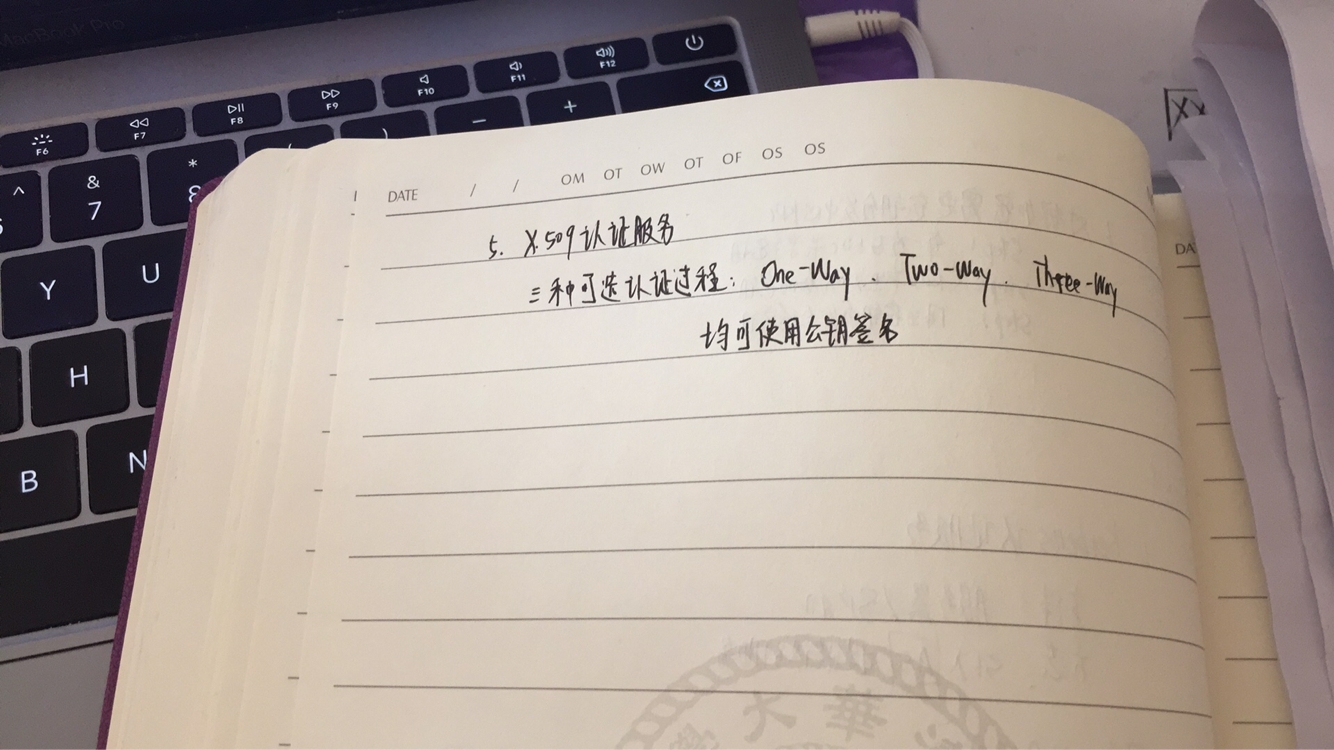 MacBook Pro
F6
F7
F8
F9
F10
F11
F12
^
&
7
*
8
)
−
+
Y
U
H
B
N
DATE / / OM OT OW OT OF OS OS
5. X.509认证服务
三种可选认证过程: One-Way . Two-Way . Three-Way
均可使用公钥签名
大華
DA
XX